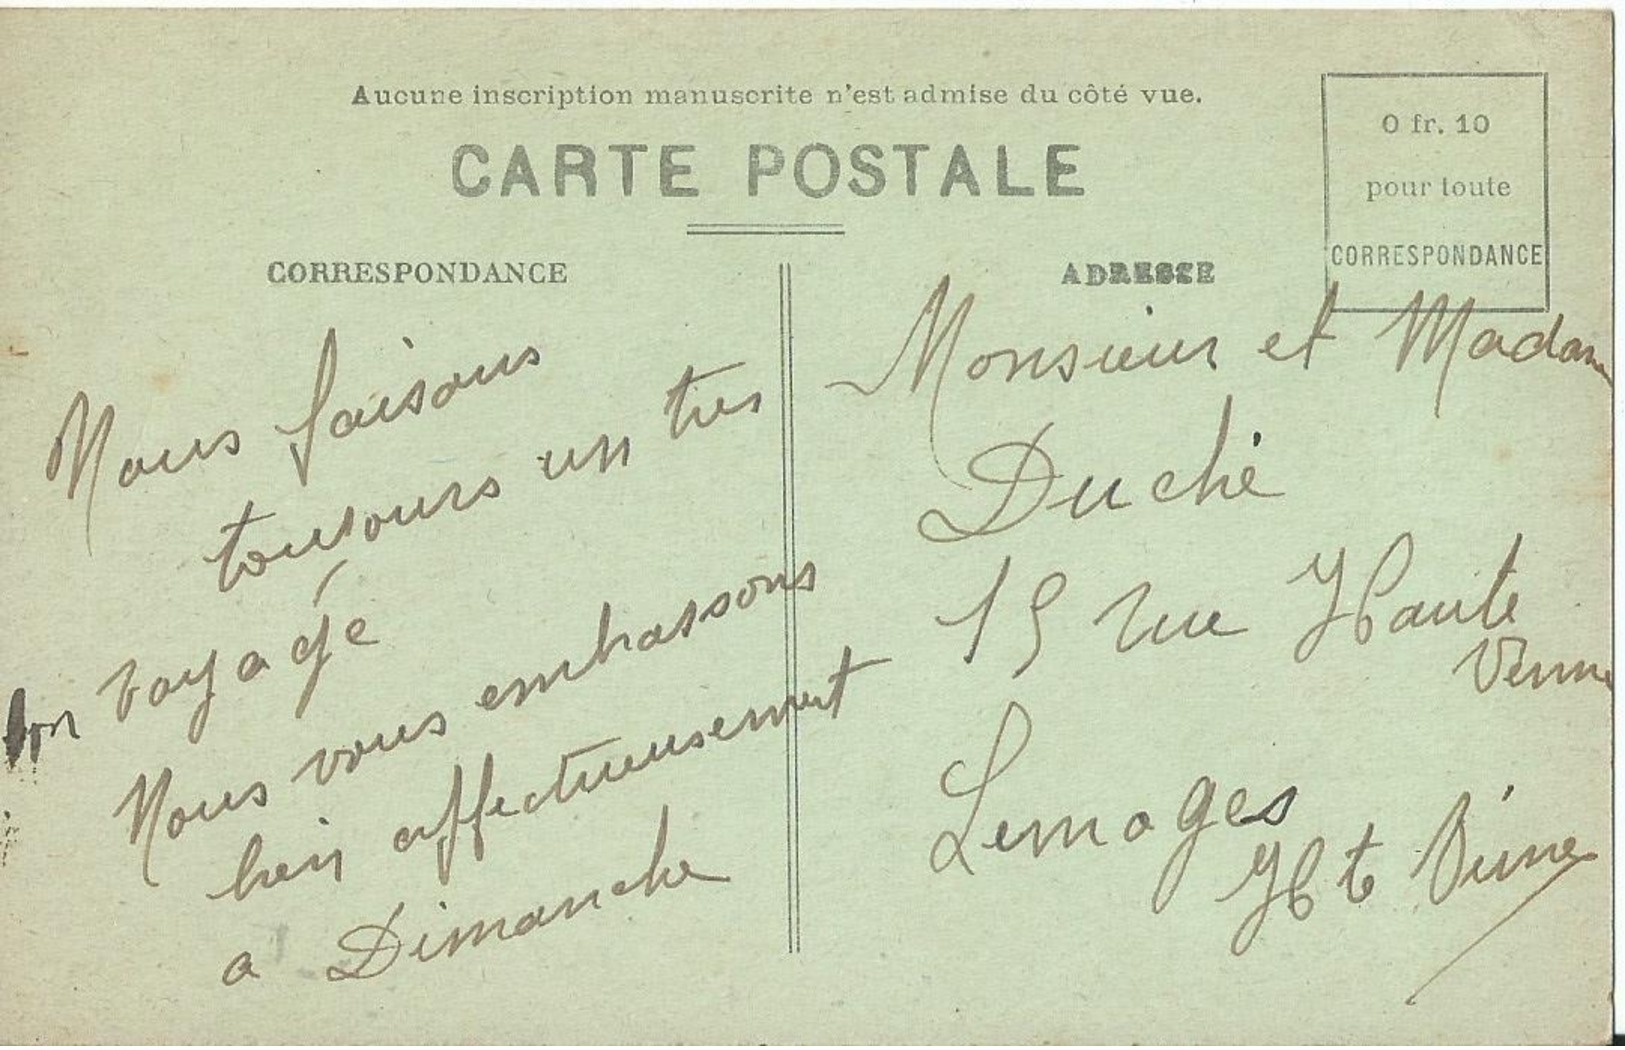 Aucune inscription manuscrite n'est admise du côté vue.
CARTE POSTALE
0 fr. 10
pour toute
CORRESPONDANCE
CORRESPONDANCE
Nous faisons
toujours un tres
bon voyage
Nous vous embrassons
bien affectueusement
a Dimanche
ADRESSE
Monsieur et Madame
Duché
15 rue Haute
Vienne
Limoges
Hte Vienne